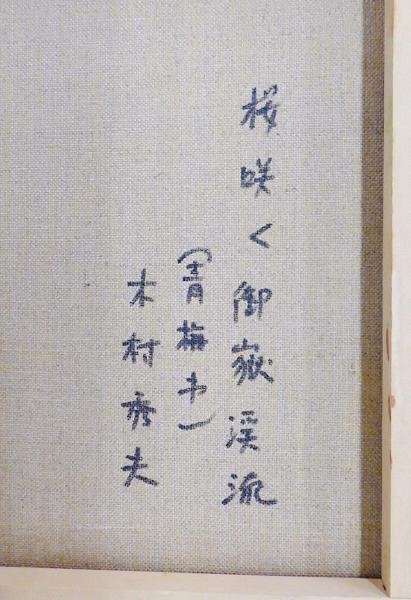 桜咲く御嶽渓流
(青梅市)
木村秀夫